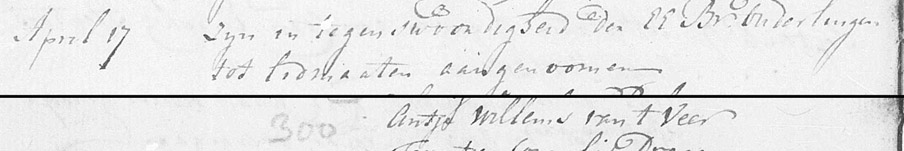 April 17 Zyn in tegenswoordigheid der EE Brs Ouderlingen
tot lidmaaten aangenoomen
300 Antje Willems van t Veer